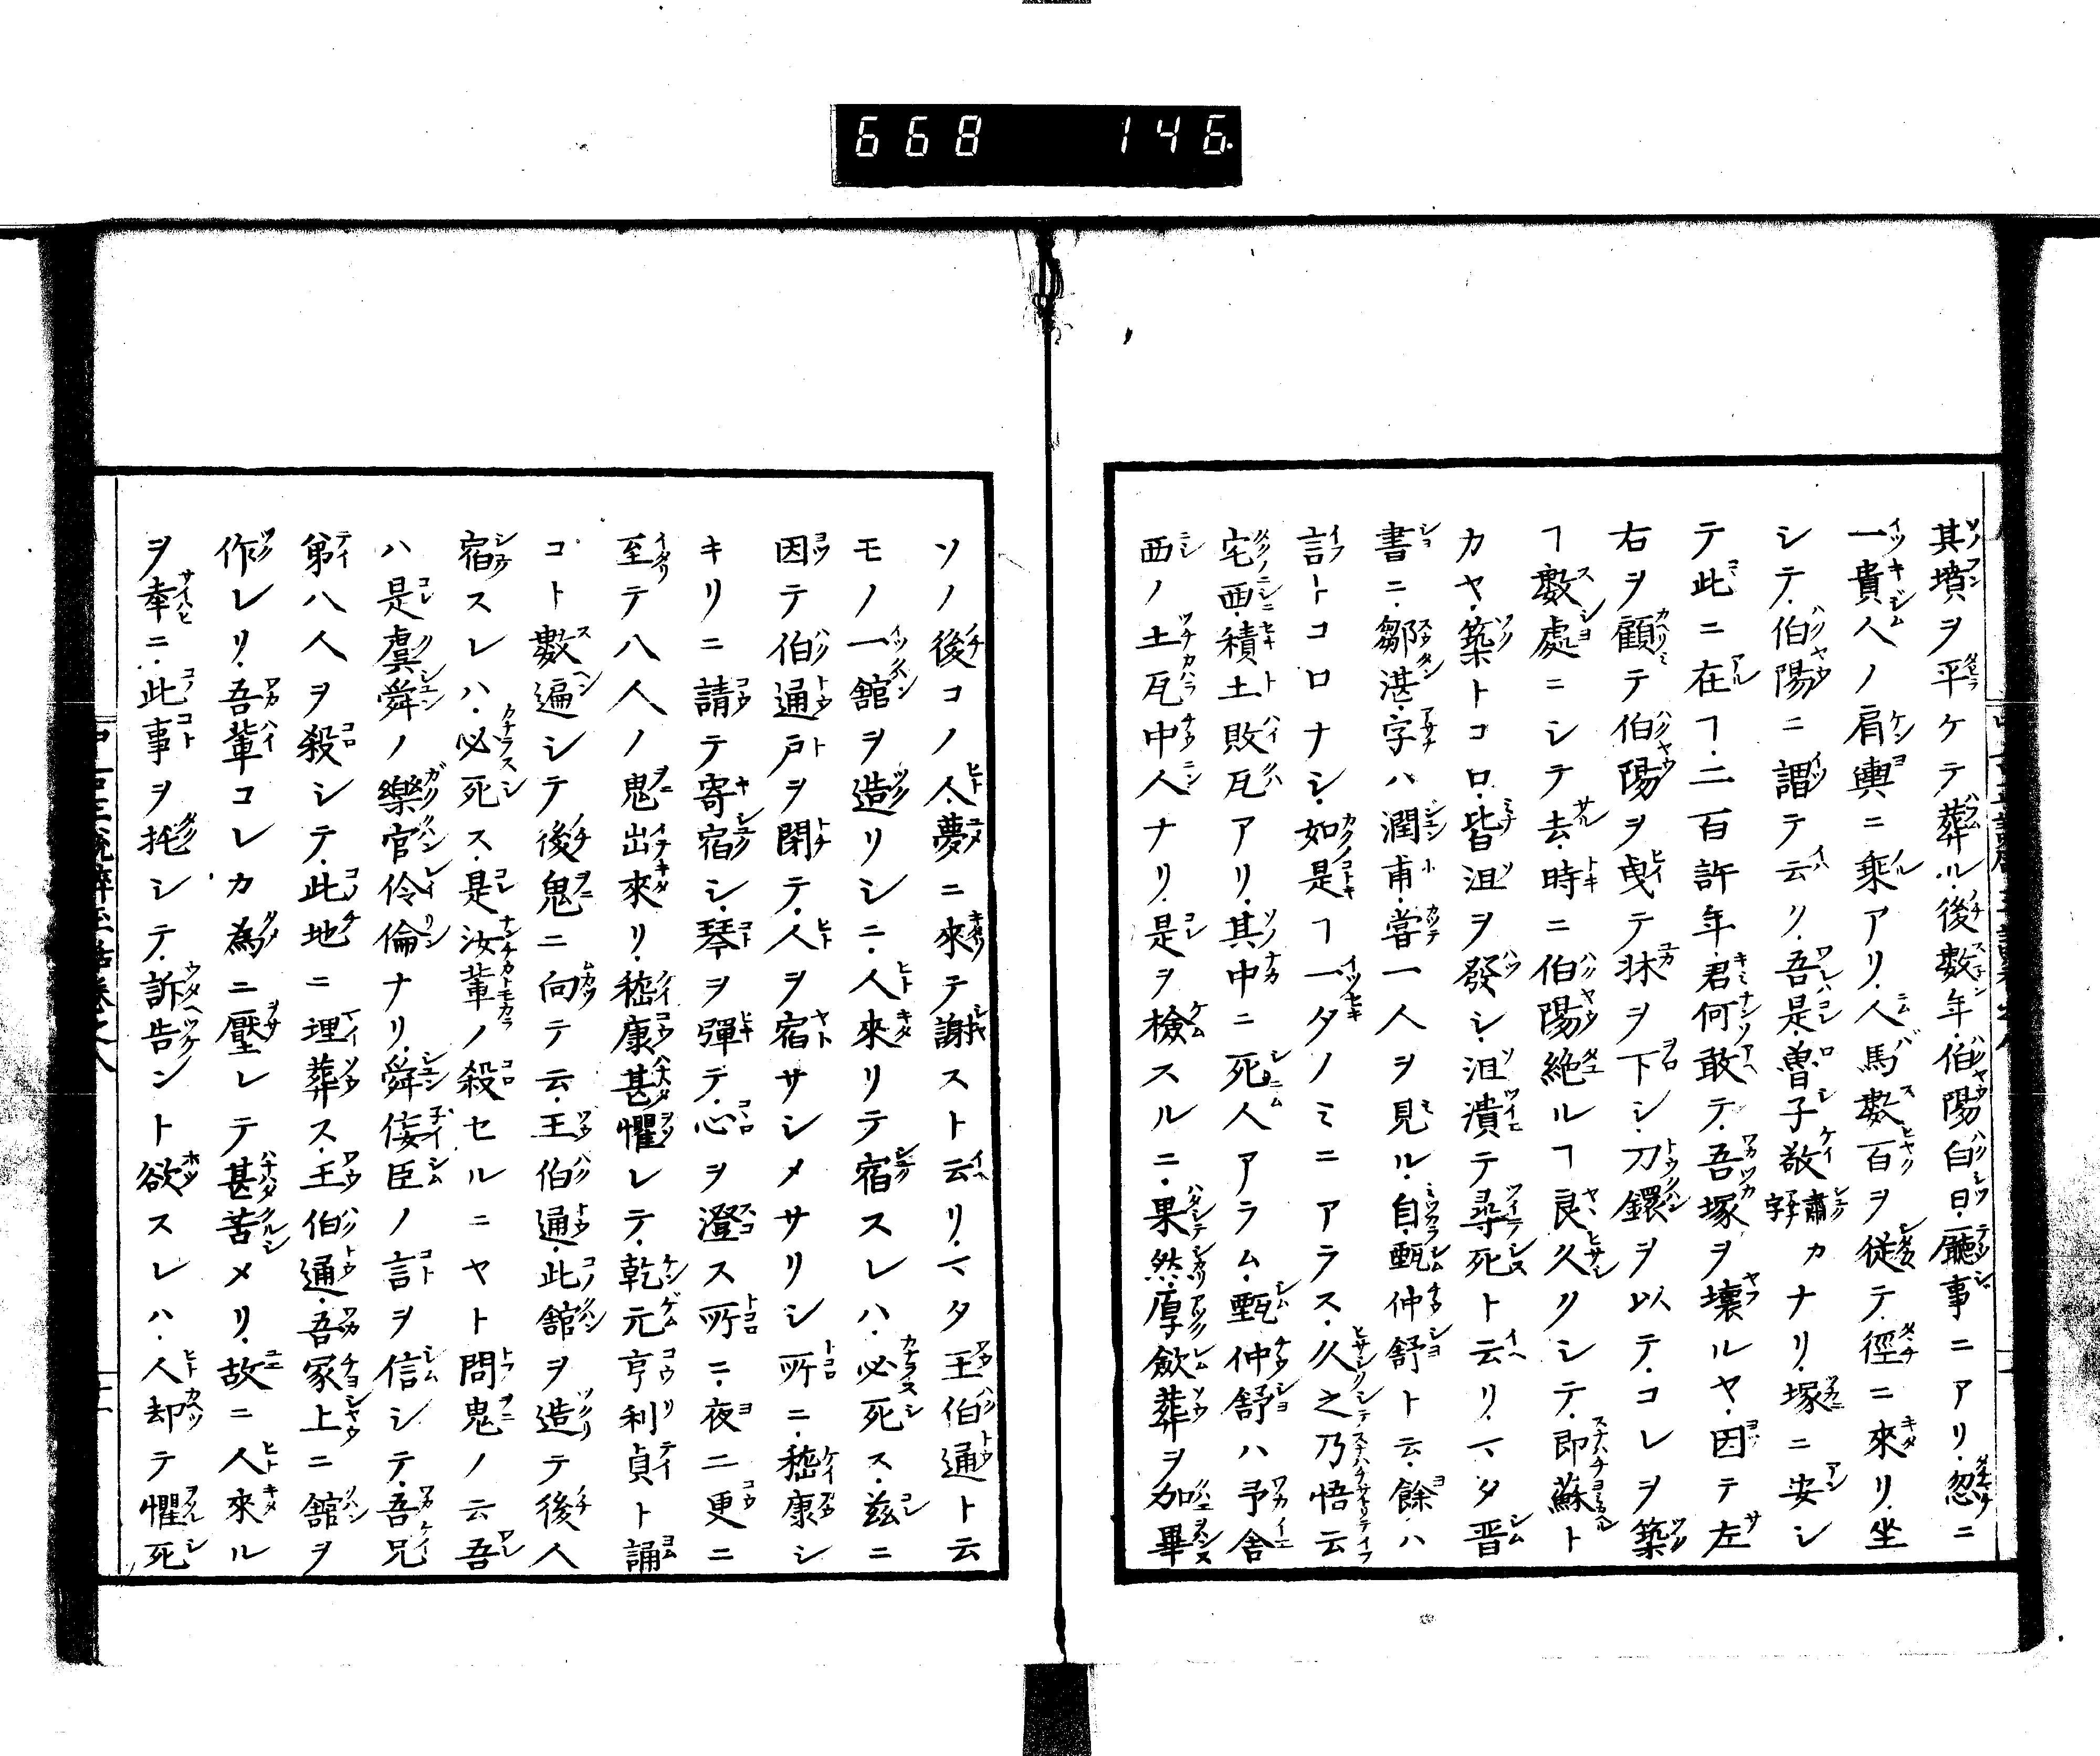 668 146
其墳ヲ平ケテ葬ル後数年伯陽白日廳事ニアリ忽ニ
一貴人ノ肩輿ニ乘アリ人馬數百ヲ従テ徑ニ來リ坐
シテ伯陽ニ謂テ云リ吾是魯子敬字肅カナリ塚ニ安シ
テ此ニ在ヿ二百許年君何敢テ吾塚ヲ壞ルヤ因テ左
右ヲ顧テ伯陽ヲ曵テ牀ヲ下シ刀鐶ヲ以テコレヲ築
ヿ數處ニシテ去時ニ伯陽絶ルヿ良久クシテ即蘇ト
カヤ築トコロ皆沮ヲ發シ沮潰テ尋死ト云リマタ晋
書ニ鄒湛字ハ潤甫嘗一人ヲ見ル自甄仲舒ト云餘ハ
言トコロナシ如是ヿ一タノミニアラス久之乃悟云
宅西積土敗瓦アリ其中ニ死人アラム甄仲舒ハ予舎
西ノ土瓦中人ナリ是ヲ檢スルニ果然厚斂葬ヲ加畢
ソノ後コノ人夢ニ來テ謝スト云リマタ王伯通ト云
モノ一舘ヲ造リシニ人來リテ宿スレハ必死ス玆ニ
因テ伯通戸ヲ閉テ人ヲ宿サシメサリシ所ニ嵆康シ
キリニ請テ寄宿シ琴ヲ彈テ心ヲ澄ス所ニ夜二更ニ
至テ八人ノ鬼出來リ嵆康甚懼レテ乾元亨利貞ト誦
コト數遍シテ後鬼ニ向テ云王伯通此舘ヲ造テ後人
宿スレハ必死ス是汝輩ノ殺セルニヤト問鬼ノ云吾
ハ是虞舜ノ樂官伶倫ナリ舜侫臣ノ言ヲ信シテ吾兄
第八人ヲ殺シテ此地ニ埋葬ス王伯通吾家上ニ舘ヲ
作レリ吾輩コレカ為ニ壓レテ甚苦メリ故ニ人來ル
ヲ幸ニ此事ヲ托シテ訴告ント欲スレハ人却テ懼死